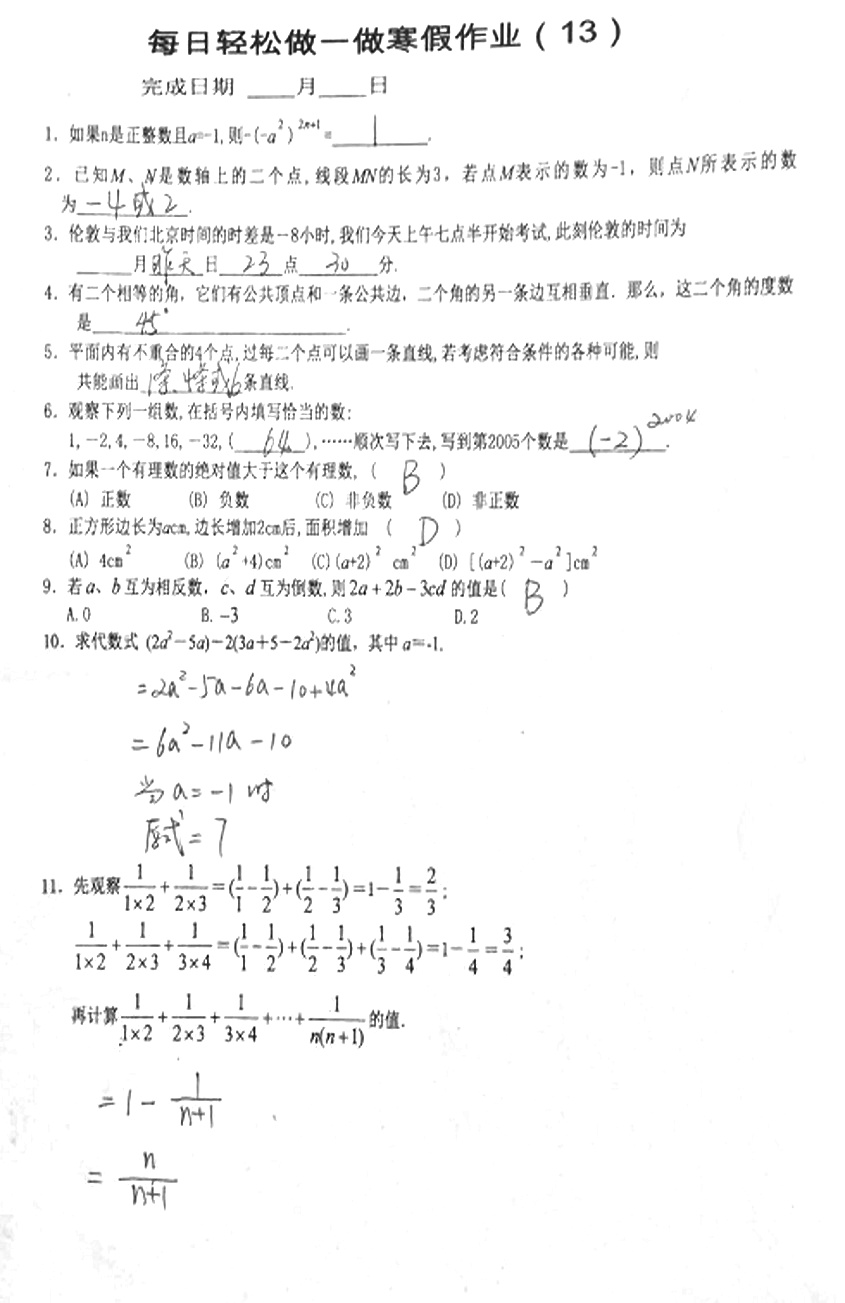 每日轻松做一做寒假作业（13）
完成日期 ____月____日
1. 如果n是正整数且a=-1, 则-(-a²)²ⁿ⁺¹= 1 .
2. 已知M、N是数轴上的二个点, 线段MN的长为3, 若点M表示的数为-1, 则点N所表示的数
为 -4或2 .
3. 伦敦与我们北京时间的时差是-8小时, 我们今天上午七点半开始考试, 此刻伦敦的时间为
____月昨天日 23 点 30 分.
4. 有二个相等的角, 它们有公共顶点和一条公共边, 二个角的另一条边互相垂直. 那么, 这二个角的度数
是 45° .
5. 平面内有不重合的4个点, 过每二个点可以画一条直线, 若考虑符合条件的各种可能, 则
共能画出 1条、4条或6条直线.
6. 观察下列一组数, 在括号内填写恰当的数:
1, -2, 4, -8, 16, -32, ( 64 ), ……顺次写下去, 写到第2005个数是 (-2)²⁰⁰⁴ .
7. 如果一个有理数的绝对值大于这个有理数, ( B )
(A) 正数 (B) 负数 (C) 非负数 (D) 非正数
8. 正方形边长为acm, 边长增加2cm后, 面积增加 ( D )
(A) 4cm² (B) (a²+4)cm² (C) (a+2)² cm² (D) [(a+2)²-a²]cm²
9. 若a、b互为相反数, c、d互为倒数, 则2a+2b-3cd的值是( B )
A. 0 B. -3 C. 3 D. 2
10. 求代数式 (2a²-5a)-2(3a+5-2a²)的值, 其中a=-1.
=2a²-5a-6a-10+4a²
=6a²-11a-10
当a=-1时
原式=7
11. 先观察 1/(1×2)+1/(2×3)=(1/1-1/2)+(1/2-1/3)=1-1/3=2/3;
1/(1×2)+1/(2×3)+1/(3×4)=(1/1-1/2)+(1/2-1/3)+(1/3-1/4)=1-1/4=3/4;
再计算 1/(1×2)+1/(2×3)+1/(3×4)+…+1/(n(n+1)) 的值.
=1-1/(n+1)
=n/(n+1)